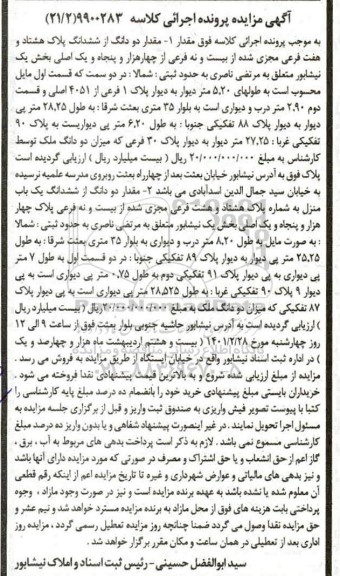 آگهی مزایده پرونده اجرائی کلاسه ۹۹۰۰۲۸۳(۲۱/۲)
به موجب پرونده اجرائی کلاسه فوق مقدار ۱- مقدار دو دانگ از ششدانگ پلاک هشتاد و
هفت فرعی مجزی شده از بیست و نه فرعی از چهارهزار و پنجاه و یک اصلی بخش یک
نیشابور متعلق به مرتضی ناصری به حدود ثبتی : شمالا : در دو سمت که قسمت اول مایل
محسوب است به طولهای ۵،۲۰ متر دیوار به دیوار پلاک ۱ فرعی از ۴۰۵۱ اصلی و قسمت
دوم ۲،۹۰ متر درب و دیواری است به بلوار ۳۵ متری بعثت شرقا : به طول ۲۸،۲۵ متر پی
دیوار به دیوار پلاک ۸۸ تفکیکی جنوبا : به طول ۶،۲۰ متر پی دیواریست به پلاک ۹۰
تفکیکی غربا : ۲۷،۲۵ متر دیوار به دیوار پلاک ۳۰ فرعی که میزان دو دانگ ملک توسط
کارشناس به مبلغ ۲۰/۰۰۰/۰۰۰/۰۰۰ ریال ( بیست میلیارد ریال ) ارزیابی گردیده است
پلاک فوق به آدرس نیشابور خیابان بعثت بعد از چهارراه بعثت روبروی مدرسه علمیه نرسیده
به خیابان سید جمال الدین اسدآبادی می باشد ۲- مقدار دو دانگ از ششدانگ یک باب
منزل به شماره پلاک هشتاد و هشت فرعی مجزی شده از بیست و نه فرعی پلاک چهار
هزار و پنجاه و یک اصلی بخش یک نیشابور متعلق به مرتضی ناصری به حدود ثبتی : شمالا
: به صورت مایل به طول ۸،۲۰ متر درب و دیواری به بلوار ۳۵ متری بعثت شرقا : به طول
۲۵،۲۵ متر پی دیوار به دیوار پلاک ۸۹ تفکیکی جنوبا : در دو قسمت اول به طول ۷ متر
پی دیواری به پی دیوار پلاک ۹۱ تفکیکی دوم به طول ۰،۷۵ متر پی دیواری است به پی
دیوار ۹ پلاک ۹۰ تفکیکی غربا : به طول ۲۸،۵۲۵ متر پی دیواری است به پی دیوار پلاک
۸۷ تفکیکی که میزان دو دانگ ملک به مبلغ ۲۰/۰۰۰/۰۰۰/۰۰۰ ریال ( بیست میلیارد ریال
) ارزیابی گردیده است به آدرس نیشابور حاشیه جنوبی بلوار بعثت فوق از ساعت ۹ الی ۱۲
روز چهارشنبه مورخ ۱۴۰۱/۲/۲۸ ( بیست و هشتم اردیبهشت ماه هزار و چهارصد و یک
) در اداره ثبت اسناد نیشابور واقع در خیابان ایستگاه از طریق مزایده به فروش می رسد .
مزایده از مبلغ ارزیابی شده شروع و به بالاترین قیمت پیشنهادی نقدا فروخته می شود .
خریداران بایستی مبلغ پیشنهادی خرید خود را بانضمام ده درصد مبلغ پایه کارشناسی را
کتبا با پیوست تصویر فیش واریزی به صندوق ثبت واریز و قبل از برگزاری جلسه مزایده به
مسئول اجرا تحویل نمایند . در غیر اینصورت پیشنهاد شفاهی و یا بدون واریز ده درصد مبلغ
کارشناسی مسموع نمی باشد . لازم به ذکر است پرداخت بدهی های مربوط به آب ، برق ،
گاز اعم از حق انشعاب و یا حق اشتراک و مصرف در صورتی که مورد مزایده دارای آنها باشد
و نیز بدهی های مالیاتی و عوارض شهرداری و غیره تا تاریخ مزایده اعم از اینکه رقم قطعی
آن معلوم شده یا نشده باشد به عهده برنده مزایده است و نیز در صورت وجود مازاد ، وجوه
پرداختی بابت هزینه های فوق از محل مازاد به برنده مزایده مسترد خواهد شد و نیم عشر و
حق مزایده نقدا وصول می گردد ضمنا چنانچه روز مزایده تعطیل رسمی گردد ، مزایده روز
اداری بعد از تعطیلی در همان ساعت و مکان مقرر برگزار خواهد شد .
سید ابوالفضل حسینی – رئیس ثبت اسناد و املاک نیشابور